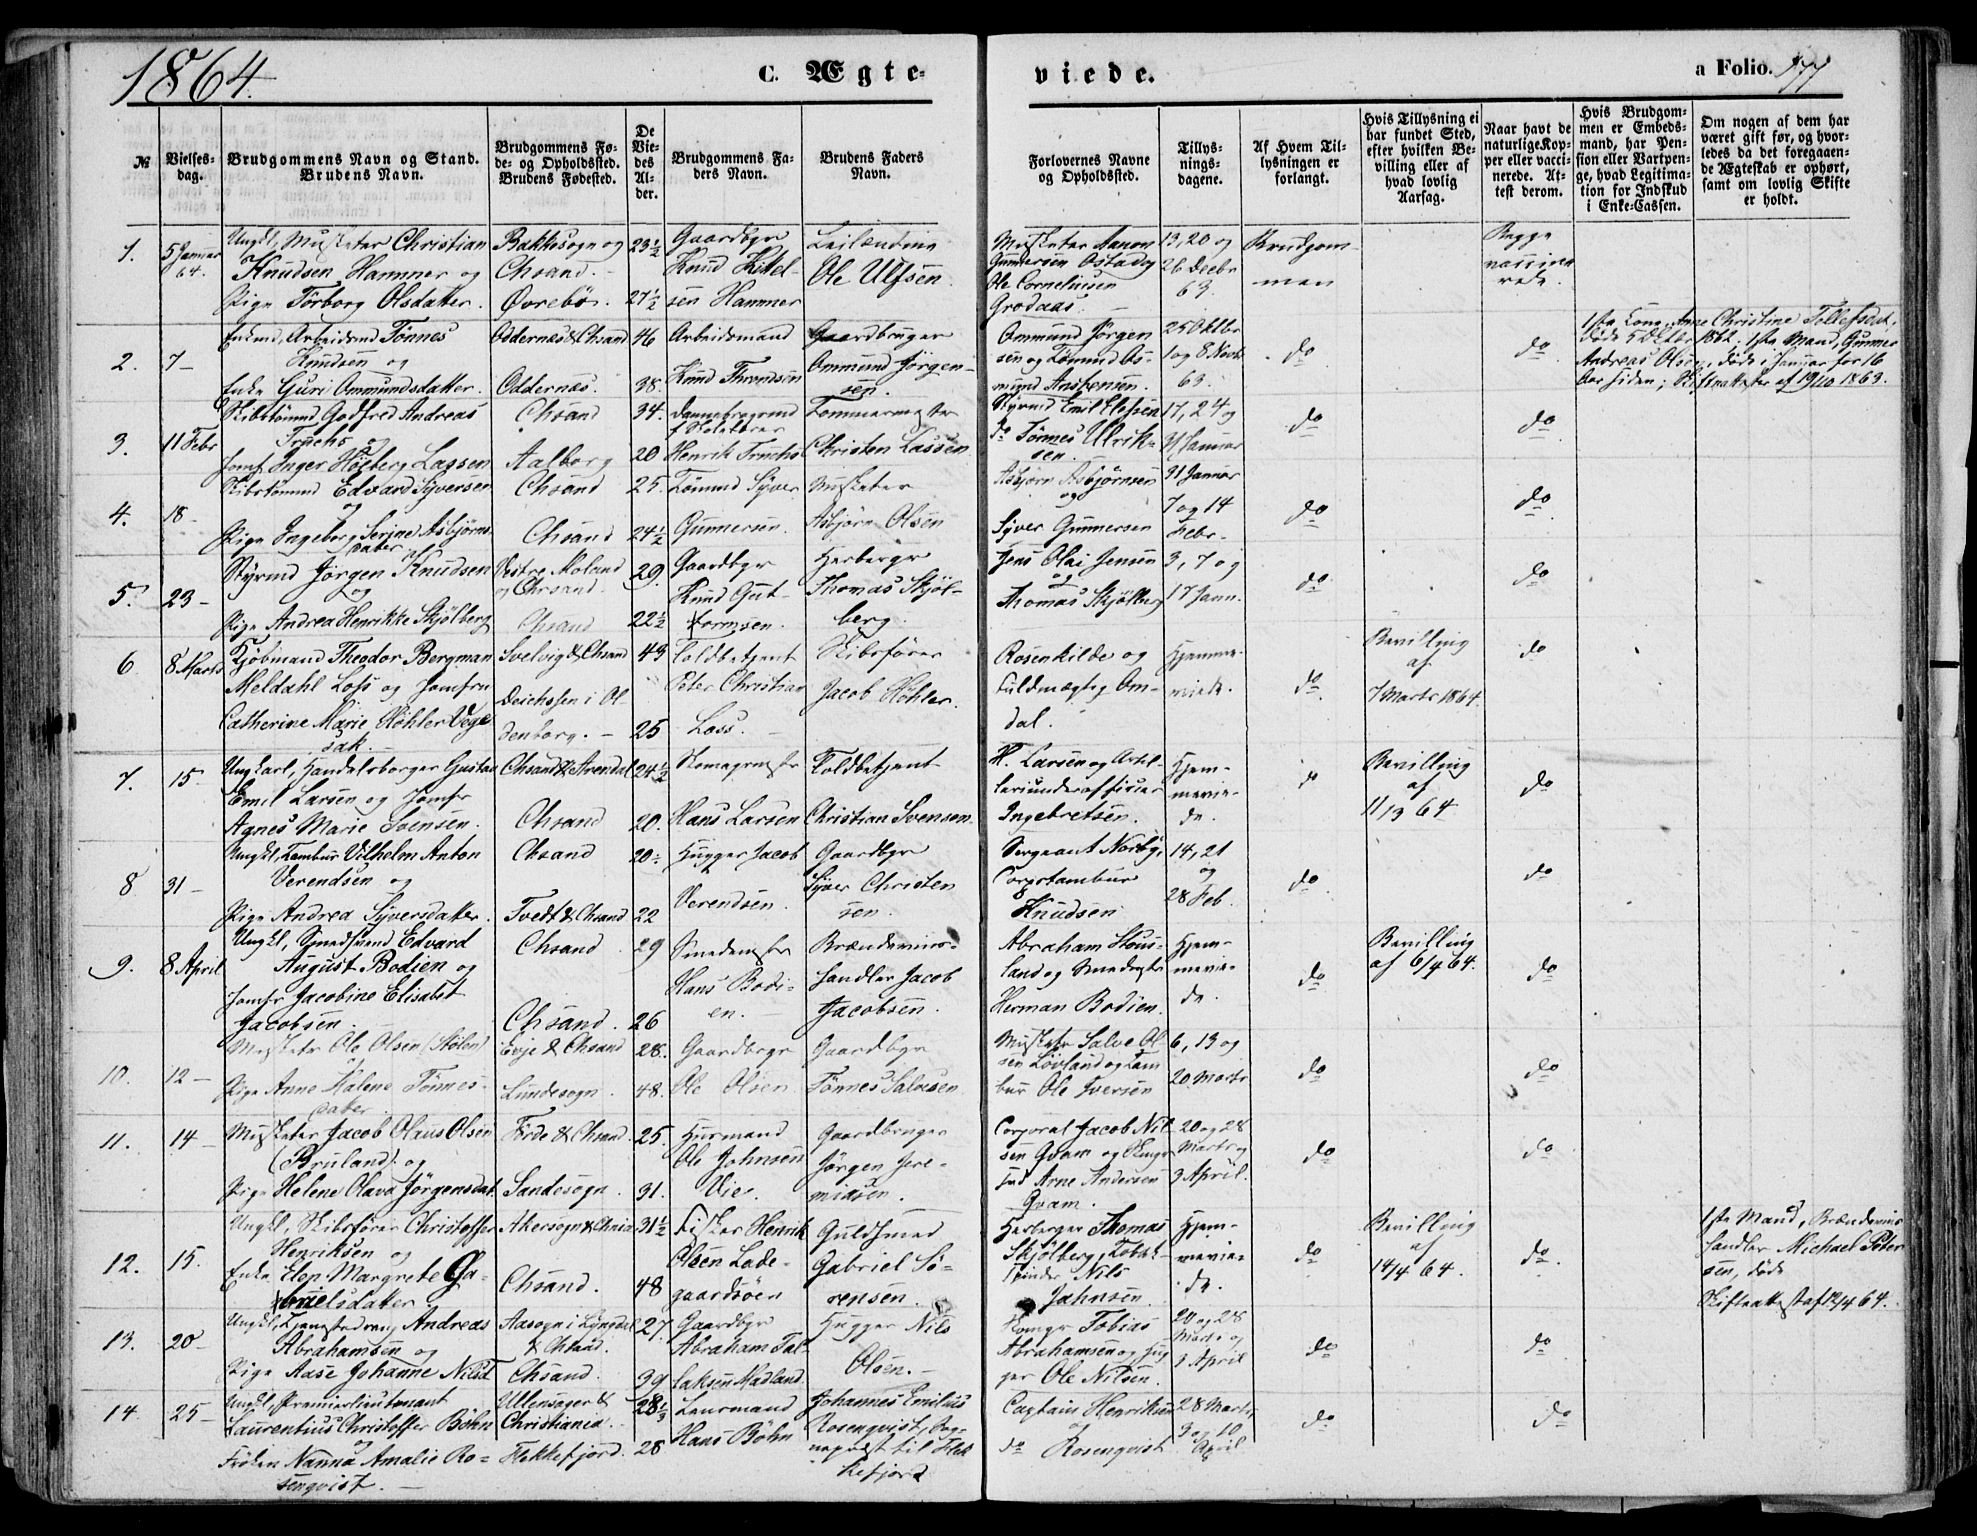 1864.
C. Ægte-
viede.
a Folio. 177
№
Vielses-
dag.
Brudgommens Navn og Stand.
Brudens Navn.
Brudgommens Fø-
de- og Opholdssted.
Brudens Fødested.
De
Vie-
des
Al-
der.
Brudgommens Fa-
ders Navn.
Brudens Faders
Navn.
Forlovernes Navne
og Opholdssted.
Tillys-
nings-
dagene.
Af Hvem Til-
lysningen er
forlangt.
Hvis Tillysning ei
har fundet Sted,
efter hvilken Be-
villing eller af
hvad lovlig
Aarsag.
Naar havt de
naturlige Kop-
per eller vacci-
nerede. At-
test derom.
Hvis Brudgom-
men er Embeds-
mand, har Pen-
sion eller Vartpen-
ge, hvad Legitima-
tion for Indskud
i Enke-Cassen.
Om nogen af dem har
været gift før, og hvor-
ledes da det foregaaen-
de Ægteskab er ophørt,
samt om lovlig Skifte
er holdt.
1.
5 Januar
64.
Ungkl, Musketer Christian
Knudsen Hammer og
Pige Torborg Olsdatter.
Bakkesogn og
Chsand.
Øvrebø.
23½
27½
Gaardbgr
Knud Kittel-
sen Hammer
Leilænding
Ole Ulfsen.
Musketer Aanon
Gunnersen Ostad og
Ole Corneliusen
Grodaas
13, 20 og
26 Decbr
63.
Brudgom-
men
Begge
vaccine
rede.
2.
7-
Enkmd, Arbeidsmd Tønnes
Knudsen og
Enke Guri Ommundsdatter.
Oddernes & Chsand
Oddernæs.
46
38.
Arbeidsmand
Knud Thronsen
Gaardbruger
Ommund Jørgen-
sen.
Ommund Jørgen
sen og Tømmd As-
mund Anstensen.
25 Oktbr
1 og 8 Novb
63.
do
do
1ste Kone, Anne Christine Tollefsdat.
døde 5 Oktbr 1862. 1ste Mand, Gunner
Andreas Olsen, døde i Januar for 16
Aar siden; Skifteattester af 19/10 1863.
3.
11 Febr
Skibstømmd Godfred Andreas
Fuchs og
Jomf Inger Høiberg Lassen
Chsand
Aalborg
34.
20
Dannebrogsmd
Henrik Fuchs
Tømmermester
Christen Lassen
Styrmd Emil Ellefsen
do Tønnes Ulrik-
sen.
17, 24 og
31 Januar
do
do
4.
18-
Skibstømmd Edvard Syversen
og
Pige Ingeborg Serine Asbjørns
datter
Chsand
Chsand
25.
24½
Tømmd Syver
Gunnersen.
Musketer
Asbjørn Olsen
Asbjørn Asbjørnsen
og
Syver Gunnersen
31 Januar
7 og 14
Febr.
do
do
5.
23-
Styrmd Jørgen Knudsen
og
Pige Andrea Henrikke Skjølberg
Vestre Moland
og Chrsand.
Chsand
29.
22½
Gaardbgr
Knud Gut-
tormsen.
Herbergr
Thomas Skjøl-
berg.
Jens Olai Jensen
og
Thomas Skjølberg
3, 7 og
17 Jann.
do
do
6
8 Marts
Kjøbmand Theodor Bergman
Meldahl Loss og Jomfru
Catherine Marie Köhler Vege
sak.
Svelvig & Chsand
Deichssen i Ol-
denborg.
43
25
Toldbetjent
Peter Christian
Loss.
Skibsfører
Jacob Köhler.
Rosenkilde og
Fuldmægtig Om-
dal.
Hjemme-
viede.
do
Bevilling
af
7 Marts 1864.
do
7.
15-
Ungkarl, Handelsborger Gustav
Emil Larsen og Jomfr
Agnes Marie Svensen.
Chsand & Arendal
Chsand
24½
20.
Skomagermstr
Hans Larsen
Toldbetjent
Christian Svensen
H. Larsen og Artil-
leriunderofficier
Ingebretsen.
Hjem-
mevie-
de.
do
Bevilling
af
11/3 64
do
8
31-
Ungkl, Tambur Vilhelm Anton
Verendsen og
Pige Andrea Syversdatter.
Chsand
Tvedt & Chsand
20½
22
Hugger Jacob
Verendsen.
Gaardbgr
Syver Christen
sen.
Sergeant Norby,
Corpstambur
Knudsen
14, 21
og
28 Feb.
do
do
9.
8 April
Ungkl, Smedsvend Edvard
August Bodien og
Jomfr Jacobine Elisabet
Jacobsen.
Chsand
Chsand.
29
26
Smedemstr
Hans Bodi-
en.
Brændevins-
handler Jacob
Jacobsen.
Abraham Stous-
land og Smedmstr
Herman Bodien.
Hjem-
mevie-
de.
do
Bevilling
af 6/4 64.
do
10.
12-
Musketer Ole Olsen (Stølen)
og
Pige Anne Malene Tønnes-
datter
Evje & Chsand
Lundesogn.
28.
48.
Gaardbrgr
Ole Olsen
Gaardbgr
Tønnes Salvesen
Musketr Salve Ol
sen Løvland og Tam
bur Ole Iversen
6, 13 og
20 Marts
do
do
11.
14-
Musketer Jacob Olaus Olsen
(Bruland) og
Pige Helene Olava Jørgensdat.
Førde & Chsand
Sandesogn.
25.
31.
Husmand
Ole Johnsen
Vie.
Gaardbruger
Jørgen Jere-
miasen.
Corporal Jacob Nil
sen Qvam og
Arne Andersen
Qvam.
20 og 28
Marts og
3 April.
do
do
12.
15.
Ungkl, Skibsfører Christoffer
Henriksen og
Enke Elen Margrete Ga-
brielsdatter.
Akersogn & Chnia
Chsand.
31½
48
Fisker Henrik
Olsen Lade-
gaardsøen
Guldsmed
Gabriel Sø-
rensen.
Herberger Thomas
Skjølberg, Tobak-
spinder Nils
Jahnsen.
Hjem-
mevie-
de.
do
Bevilling
af
14/4 64.
do.
1ste Mand, Brændevins
handler Michael Peter
sen, døde
Skifteattest af 12/4 64.
13.
20-
Ungkl, Tjenestedreng Andreas
Abrahamsen og
Pige Aase Johanne Nilsd
Aasogn i Lyngdal
& Chsand.
Chsand.
27.
39
Gaardbgr
Abraham Tal-
laksen Madland.
Hugger Nils
Olsen.
Tobias
Abrahamsen og Hug
ger Ole Nilsen.
20 og 28
Marts og
3 April
do
do
14
25-
Ungkl, Premierlieutenant
Laurentius Christoffer Bøhn
og
Frøken Nanna Amalie Ro-
senqvist.
Ullensager &
Christiania.
Flekkefjord.
28⅓
28
Lensmand
Hans Bøhn
Johannes Emilius
Rosenqvist, Sog-
nepræst til Flek
kefjord
Captain Henriksen
og
do Rosenqvist
28 Marts,
3 og 10
April
do
do